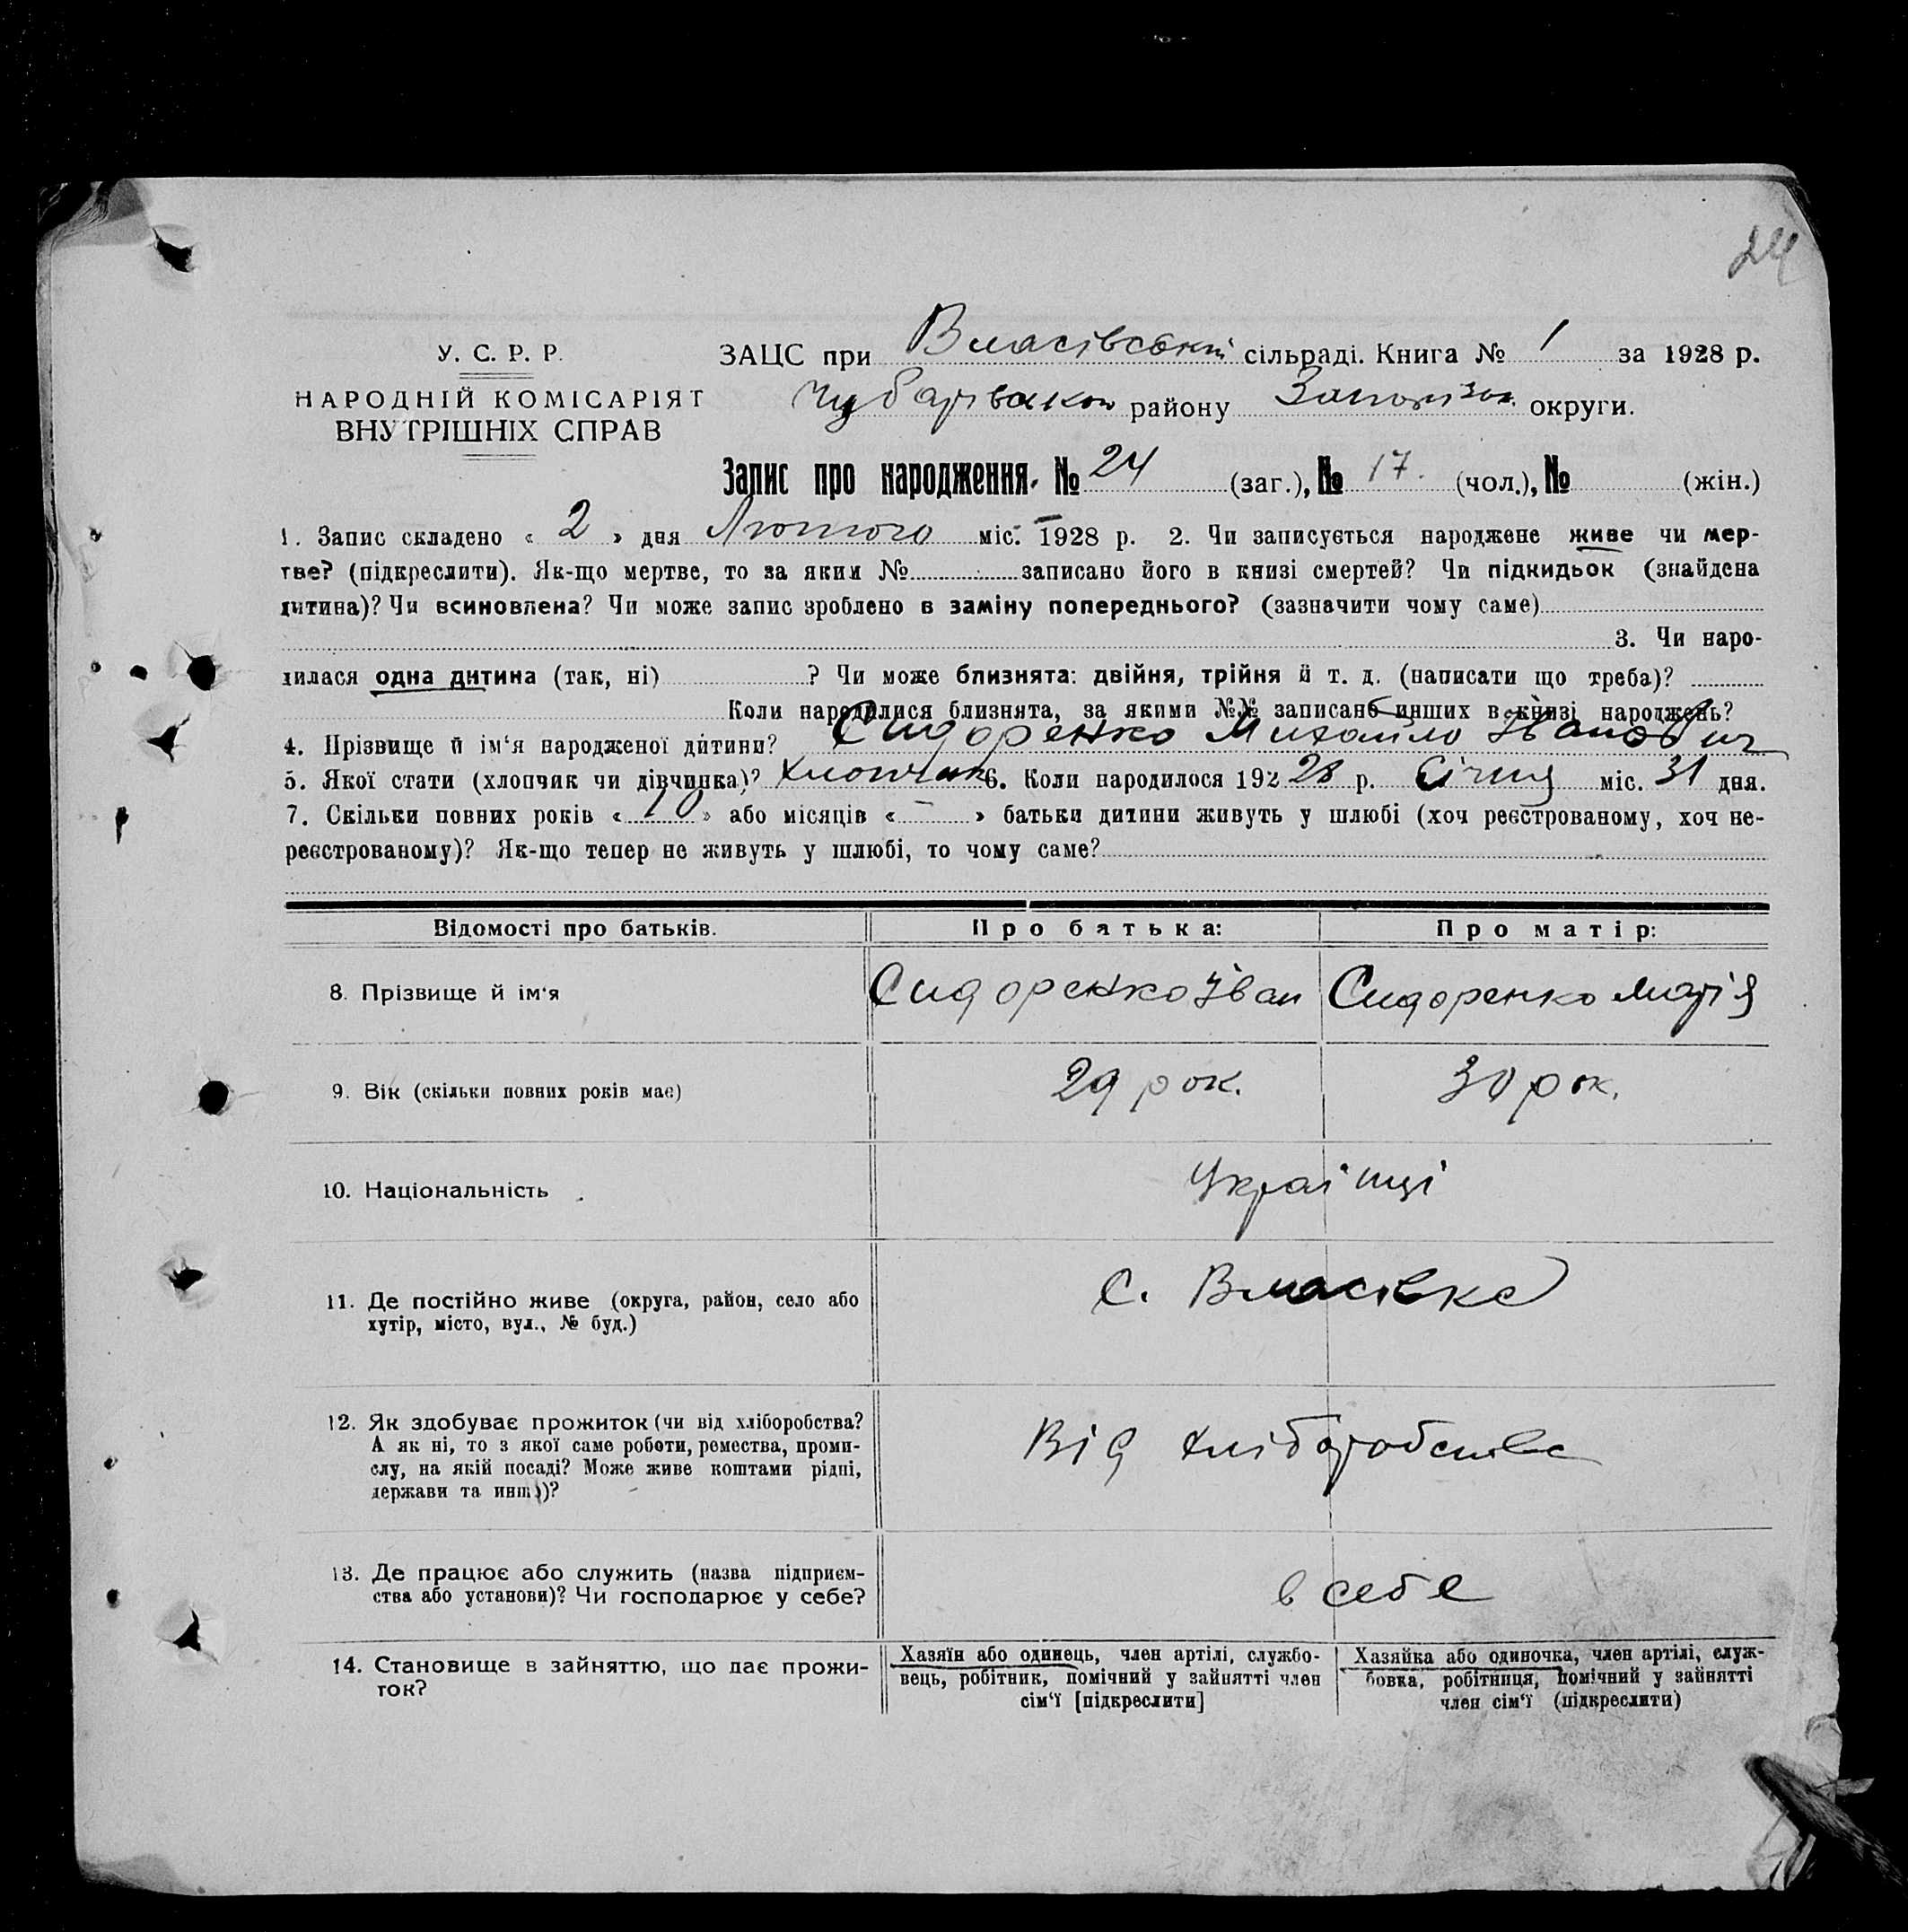 24
У. С. Р. Р.
НАРОДНІЙ КОМІСАРІЯТ
ВНУТРІШНІХ СПРАВ
ЗАЦС при Власівській сільраді. Книга № 1 за 1928 р.
Чубарівськ району Запоріз округи.
Запис про народження. № 24 (заг.), № 17. (чол.), № (жін.)
1. Запис складено « 2 » дня Лютого міс. 1928 р. 2. Чи записується народжене живе чи мер-
тве? (підкреслити). Як-що мертве, то за яким № записано його в книзі смертей? Чи підкидьок (знайдена
дитина)? Чи всиновлена? Чи може запис зроблено в заміну попереднього? (зазначити чому саме)
3. Чи наро-
дилася одна дитина (так, ні) ? Чи може близнята: двійня, трійня й т. д. (написати що треба)?
Коли народилися близнята, за якими №№ записано инших в книзі народжень?
4. Прізвище й ім‘я народженої дитини? Сидоренко Михайло Іванович
5. Якої стати (хлопчик чи дівчинка)? Хлопчик 6. Коли народилося 192 28 р. Січня міс. 31 дня.
7. Скільки повних років « 10 » або місяців « – » батьки дитини живуть у шлюбі (хоч реєстрованому, хоч не-
реєстрованому)? Як-що тепер не живуть у шлюбі, то чому саме?
Відомості про батьків. Про батька: Про матір:
8. Прізвище й ім‘я Сидоренко Іван Сидоренко Марія
9. Вік (скільки повних років має) 29 рок. 30 рок.
10. Національність Українці
11. Де постійно живе (округа, район, село або
хутір, місто, вул., № буд.)
с. Власівка
12. Як здобуває прожиток (чи від хліборобства?
А як ні, то з якої саме роботи, ремества, проми-
слу, на якій посаді? Може живе коштами рідні,
держави та инш.)?
Від хліборобства
13. Де працює або служить (назва підприєм-
ства або установи)? Чи господарює у себе?
в себе
14. Становище в зайняттю, що дає прожи-
ток?
Хазяїн або одинець, член артілі, службо-
вець, робітник, помічний у зайнятті член
сім‘ї [підкреслити]
Хазяйка або одиночка, член артілі, служ-
бовка, робітниця, помічний у зайнятті
член сім‘ї (підкреслити)